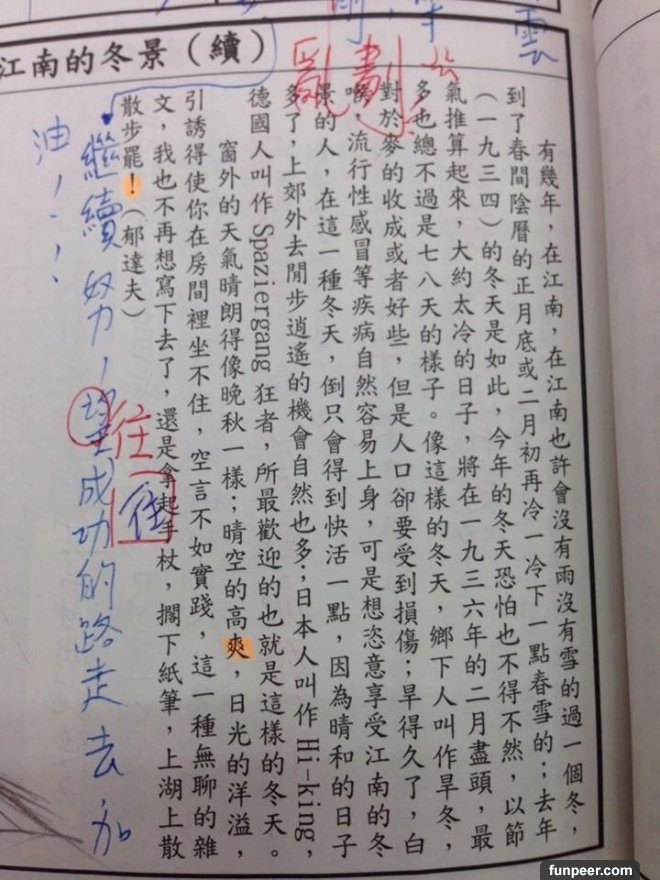 雲
亂劃
江南的冬景（續）
有幾年，在江南，在江南也許會沒有雨沒有雪的過一個冬，
到了春間陰曆的正月底或二月初再冷一冷下一點春雪的；去年
（一九三四）的冬天是如此，今年的冬天恐怕也不得不然，以節
氣推算起來，大約太冷的日子，將在一九三六年的二月盡頭，最
多也總不過是七八天的樣子。像這樣的冬天，鄉下人叫作旱冬，
對於麥的收成或者好些，但是人口卻要受到損傷；旱得久了，白
喉，流行性感冒等疾病自然容易上身，可是想恣意享受江南的冬
景的人，在這一種冬天，倒只會得到快活一點，因為晴和的日子
多了，上郊外去閒步逍遙的機會自然也多；日本人叫作 Hi-king，
德國人叫作 Spaziergang 狂者，所最歡迎的也就是這樣的冬天。
窗外的天氣晴朗得像晚秋一樣；晴空的高爽，日光的洋溢，
引誘得使你在房間裡坐不住，空言不如實踐，這一種無聊的雜
文，我也不再想寫下去了，還是拿起手杖，擱下紙筆，上湖上散
散步罷！（郁達夫）
往 往
繼續努力，成功的路走去，加
油！！
funpeer.com